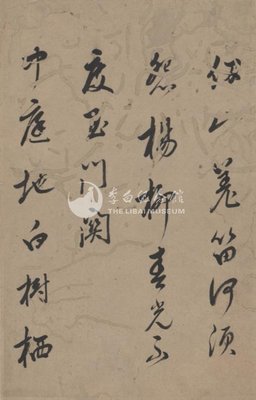 仞山羌笛何須
怨楊柳春光不
度玉門關
中庭地白樹栖
李白紀念館
THE LIBAI MUSEUM